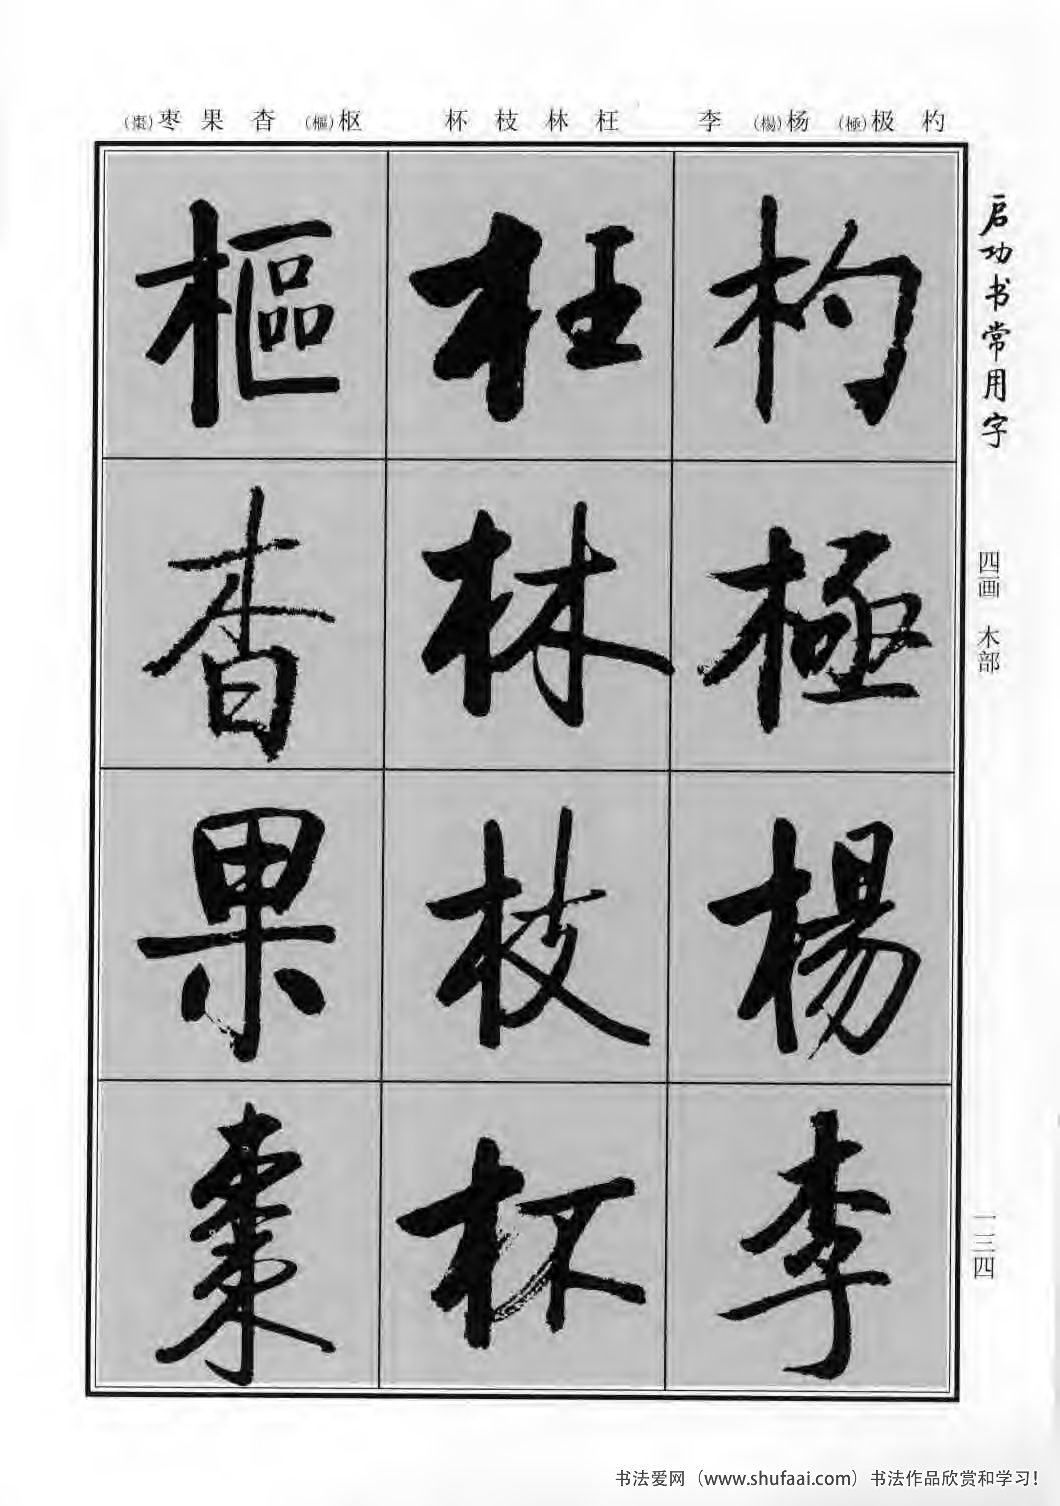 启功书常用字
四画 木部
一三四
杓 极(極) 杨(楊) 李 枉 林 枝 杯 枢(樞) 杳 果 枣(棗)
杓極楊李
枉林枝杯
樞杳果棗
书法爱网（www.shufaai.com）书法作品欣赏和学习！